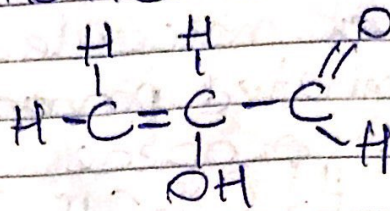 H H O
H-C=C-C
H
OH